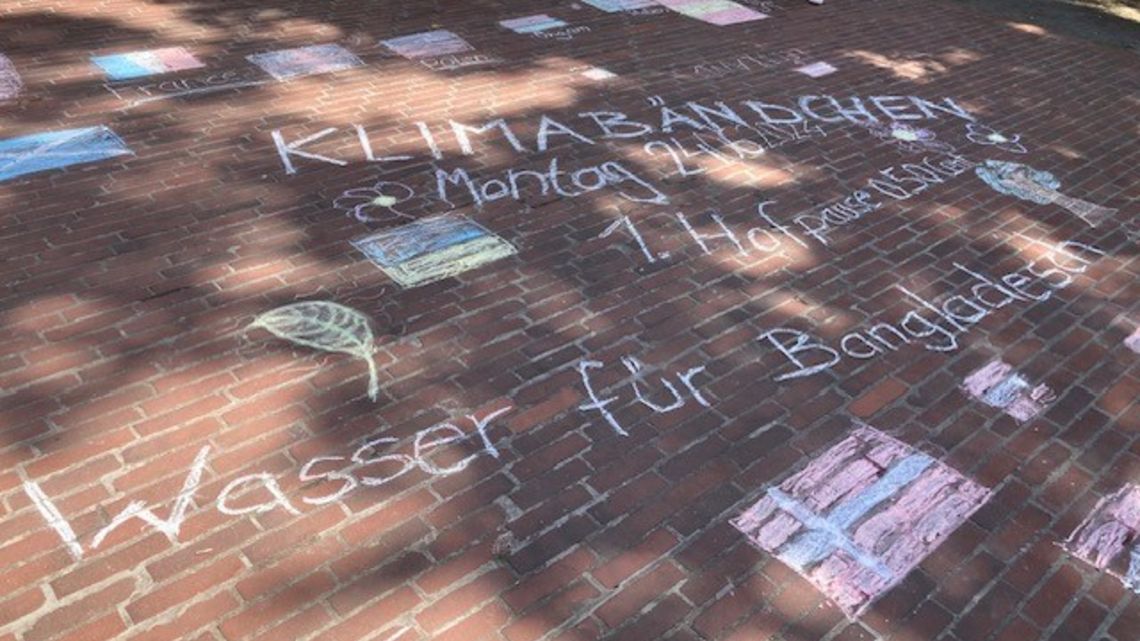 France
Polen
Ungarn
KLIMABÄNDCHEN
Montag 24.
1. Hofpause 0.50 Cent
Wasser für Bangladesch